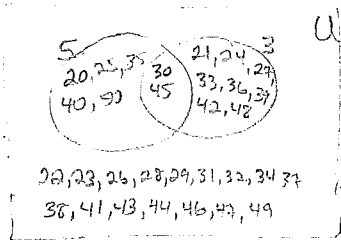 5 3 U
20, 25, 35
40, 50
30
45
21, 24, 27,
33, 36, 39
42, 48
22, 23, 26, 28, 29, 31, 32, 34 37
38, 41, 43, 44, 46, 47, 49